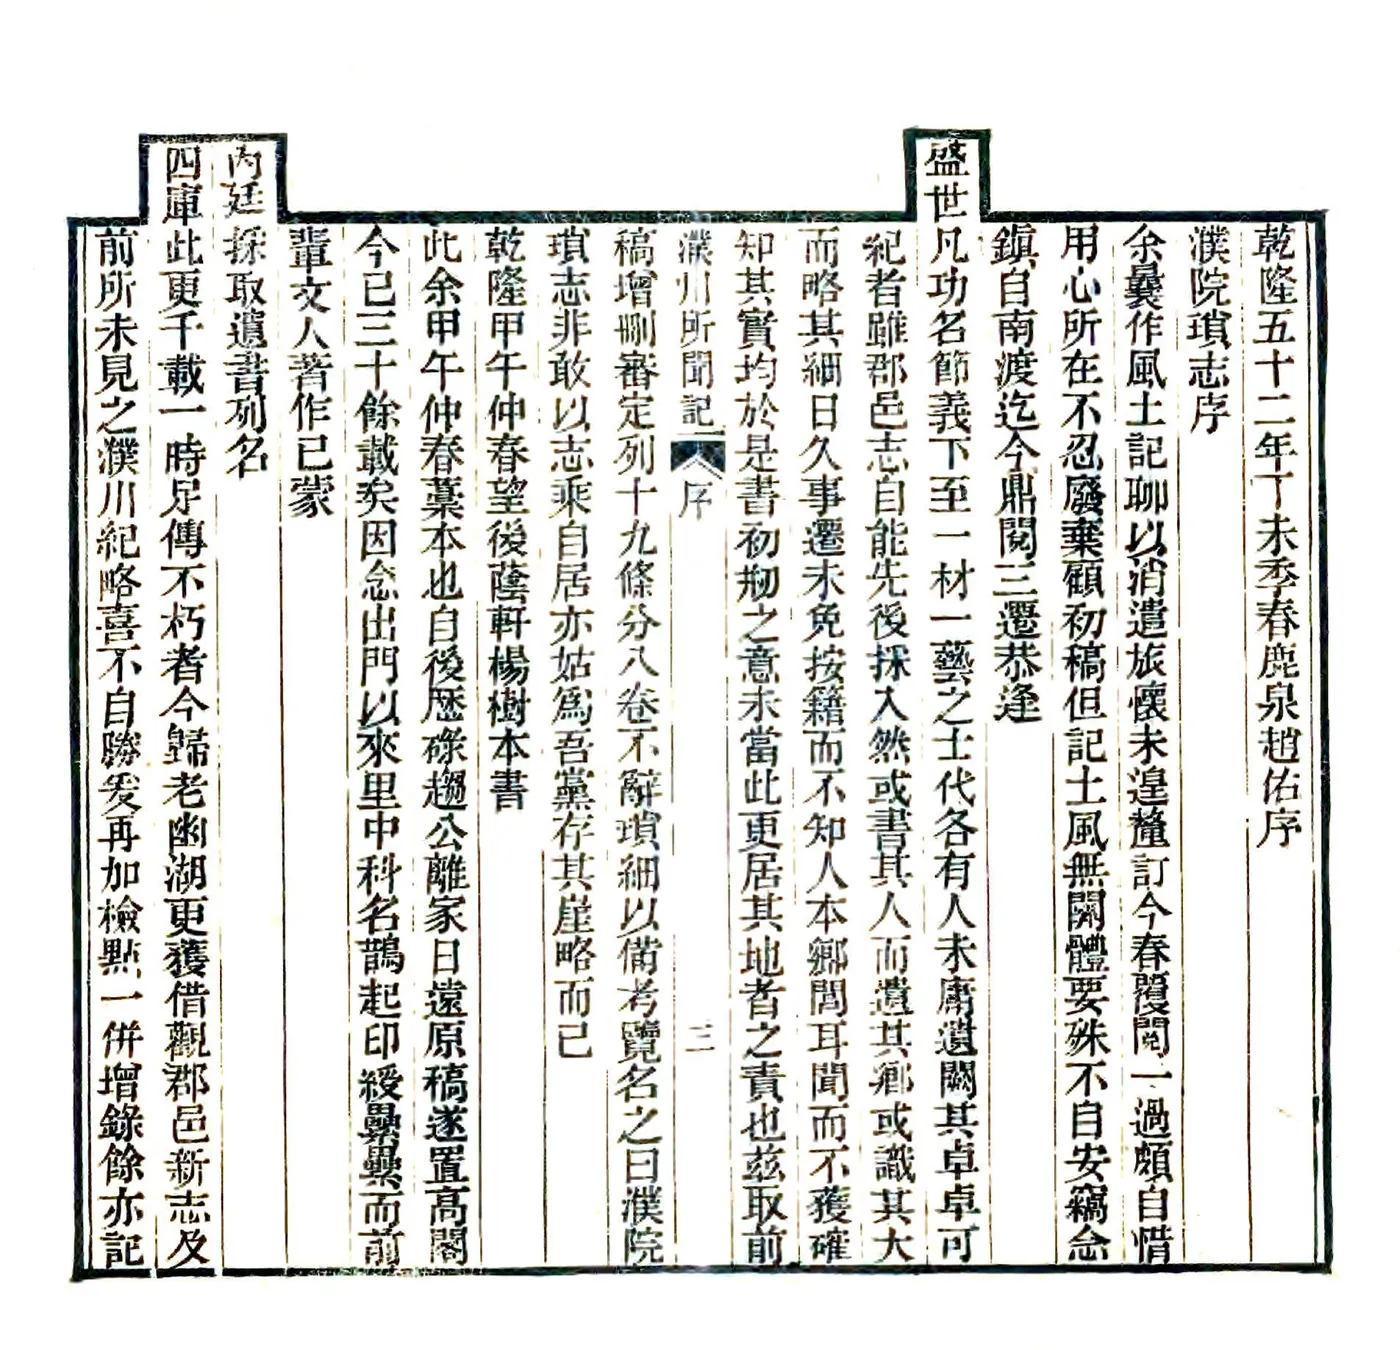 乾隆五十二年丁未季春鹿泉趙佑序
濮院瑣志序
余曩作風土記聊以消遣旅懷未遑釐訂今春覆閱一過頗自惜
用心所在不忍廢棄顧初稿但記土風無關體要殊不自安竊念
鎮自南渡迄今鼎閱三遷恭逢
盛世凡功名節義下至一材一藝之士代各有人未庸遺闕其卓卓可
紀者雖郡邑志自能先後採入然或書其人而遺其鄉或識其大
而略其細日久事遷未免按籍而不知人本鄉閭耳聞而不獲確
知其實均於是書初剏之意未當此更居其地者之責也茲取前
濮川所聞記 序 三
稿增刪審定列十九條分八卷不辭瑣細以備考覽名之曰濮院
瑣志非敢以志乘自居亦姑爲吾黨存其崖略而已
乾隆甲午仲春望後蔭軒楊樹本書
此余甲午仲春藁本也自後歷碌趨公離家日遠原稿遂置高閣
今已三十餘載矣因念出門以來里中科名鵲起印綬纍纍而前
輩文人著作已蒙
內廷採取遺書列名
四庫此更千載一時足傳不朽者今歸老幽湖更獲借觀郡邑新志及
前所未見之濮川紀略喜不自勝爰再加檢點一併增錄餘亦記